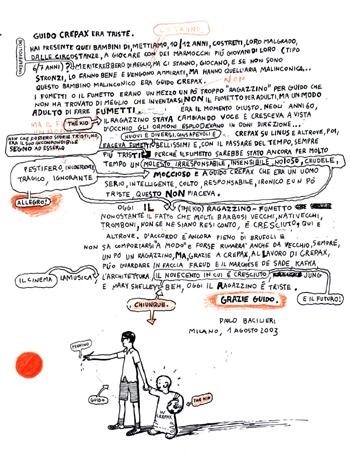 GUIDO CREPAX ERA TRISTE.
HAI PRESENTE QUEI BAMBINI DI, METTIAMO, 10/12 ANNI, COSTRETTI, LORO MALGRADO,
DALLE CIRCOSTANZE, A GIOCARE CON DEI MARMOCCHI PIÙ GIOVANI DI LORO (TIPO
6/7 ANNI)? MERITEREBBERO DI MEGLIO, MA CI STANNO, GIOCANO, E SE NON SONO
STRONZI, LO FANNO BENE E VENGONO AMMIRATI, MA HANNO QUELL'ARIA MALINCONICA...
QUESTO BAMBINO MALINCONICO ERA CREPAX... NON
I FUMETTI O IL FUMETTO ERANO UN MEZZO UN PO' TROPPO "RAGAZZINO" PER GUIDO CHE
NON HA TROVATO DI MEGLIO CHE INVENTARSI NON IL FUMETTO PER ADULTI, MA UN MODO
ADULTO DI FARE FUMETTI. ERA IL MOMENTO GIUSTO, NEGLI ANNI 60,
THE KID IL RAGAZZINO STAVA CAMBIANDO VOCE E CRESCEVA A VISTA
D'OCCHIO GLI ORMONI ESPLODEVANO IN OGNI DIREZIONE...
(NUOVI E DIVERSI, ORGASMICI)
CREPAX SU LINUS E ALTROVE, POI,
NON CHE POTESSERO ESSERE TRISTI, NO,
ERA IL SUO INCONFONDIBILE
SEGNO AD ESSERLO
FACEVA FUMETTI BELLISSIMI E, CON IL PASSARE DEL TEMPO, SEMPRE
PIÙ TRISTI PERCHÉ IL FUMETTO SAREBBE STATO ANCORA PER MOLTO
TEMPO UN MOLESTO, IRRESPONSABILE, INSENSIBILE, NOIOSO, CRUDELE,
PESTIFERO,
TRAGICO, IGNORANTE
MOCCIOSO E A GUIDO CREPAX CHE ERA UN UOMO
SERIO, INTELLIGENTE, COLTO, RESPONSABILE, IRONICO E UN PO'
TRISTE, QUESTO NON PIACEVA.
ALLEGRO!
OGGI IL RAGAZZINO-FUMETTO
NONOSTANTE IL FATTO CHE MOLTI BARBOSI VECCHI, CATTIVECCHI,
TROMBONI, NON SE NE SIANO RESI CONTO, È CRESCIUTO, QUI E
ALTROVE. D'ACCORDO È ANCORA PIENO DI BRUFOLI E
NON SA COMPORTARSI A MODO E FORSE RIMARRÀ ANCHE DA VECCHIO, SEMPRE,
UN PO' UN RAGAZZINO, MA, GRAZIE A CREPAX, AL LAVORO DI CREPAX,
PUÒ GUARDARE IN FACCIA FREUD E IL MARCHESE DE SADE, KAFKA,
IL CINEMA LA MUSICA L'ARCHITETTURA IL NOVECENTO IN CUI È CRESCIUTO, JUNG
E MARY SHELLEY E BEH, OGGI IL RAGAZZINO È TRISTE.
CHIUNQUE.
GRAZIE GUIDO.
E IL FUTURO!
PAOLO BACILIERI
MILANO, 1 AGOSTO 2003
GUIDO
THE KID
CREPAX